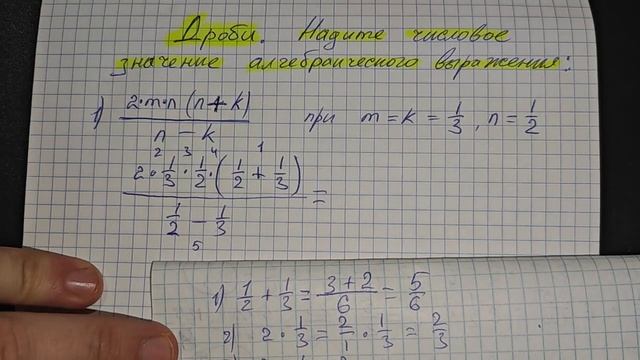 Дроби. Надите числовое
значение алгебраического выражения:
1) 2·m·n (n+k) / n - k при m = k = 1/3, n = 1/2
2 3 4 1
2 · 1/3 · 1/2 · (1/2 + 1/3) / 1/2 - 1/3 =
5
1) 1/2 + 1/3 = 3+2/6 = 5/6
2) 2 · 1/3 = 2/1 · 1/3 = 2/3